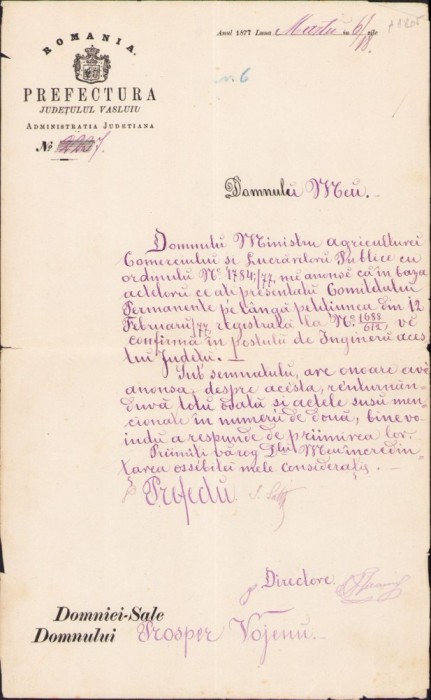 ROMANIA.
PREFECTURA
JUDEȚULUI VASLUIU
ADMINISTRATIA JUDETIANA
No 2207.
Anul 1877 Luna Martiu in 6/18 zile
n. 6
Domnului Meu. -
Domnulu Ministru Agriculturei
Comerciului si Lucrărilorŭ Publice cu
ordinulu No 1784/77, mĕ anonsĕ că in baza
actelorŭ ce ati presentatŭ Comitetului
Permanente pe lângă petițiunea din 12
Februariŭ/77, registrată la No. 1688/612, vĕ
confirmă in postulŭ de Ingineru aces
tui Judetu. -
Sub semnatulŭ, are onoare a vĕ
anonsa, despre acésta, rĕnturnân-
duvă totŭ odată si actele susŭ men-
cionate in numeru de două, binevo-
indŭ a respunde de priimirea lor.
Priimiti vă rog Dlui Meu incredin-
țarea ossibitei mele consideratii. -
p Prefectu
p Directore
Domniei-Sale
Domnului Prosper Vojenu. -